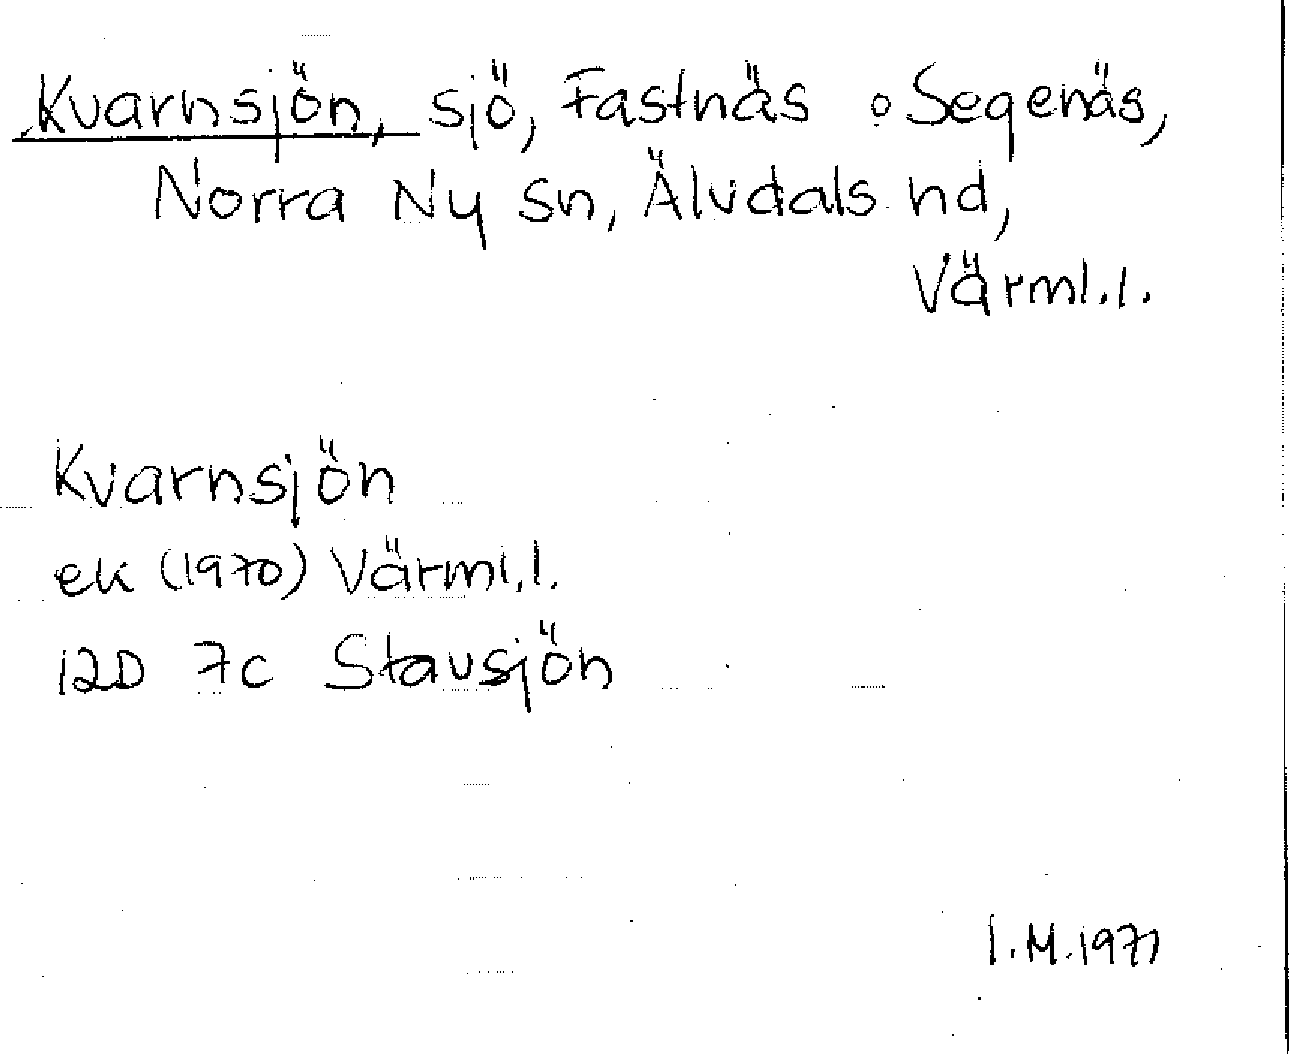 Kvarnsjön, sjö, Fastnäs o Segenäs,
Norra Ny sn, Älvdals hd,
Värml.l.
Kvarnsjön
ek (1970) Värml.l.
12D 7c Stavsjön
I.M.1971